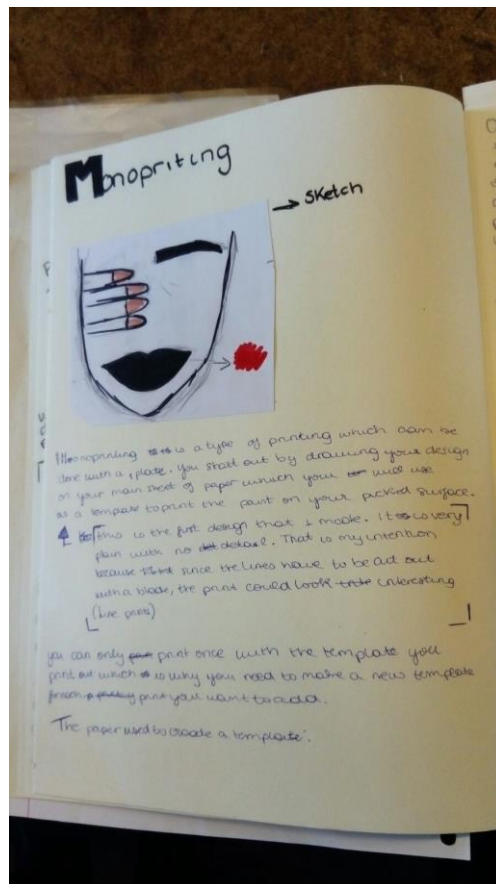 Monopriting
→ Sketch
Monoprinting is a type of printing which can be
done with a plate. You start out by drawing your design
on your main sheet of paper which your will use
as a template to print the paint on your picked surface.
this is the first design that i made. It is very
plain with no detail. That is my intention
because since the lines have to be cut out
with a blade, the print could look interesting
(line prints)
you can only print once with the template you
print out which is why you need to make a new template
for each print you want to add.
The paper used to create a template.